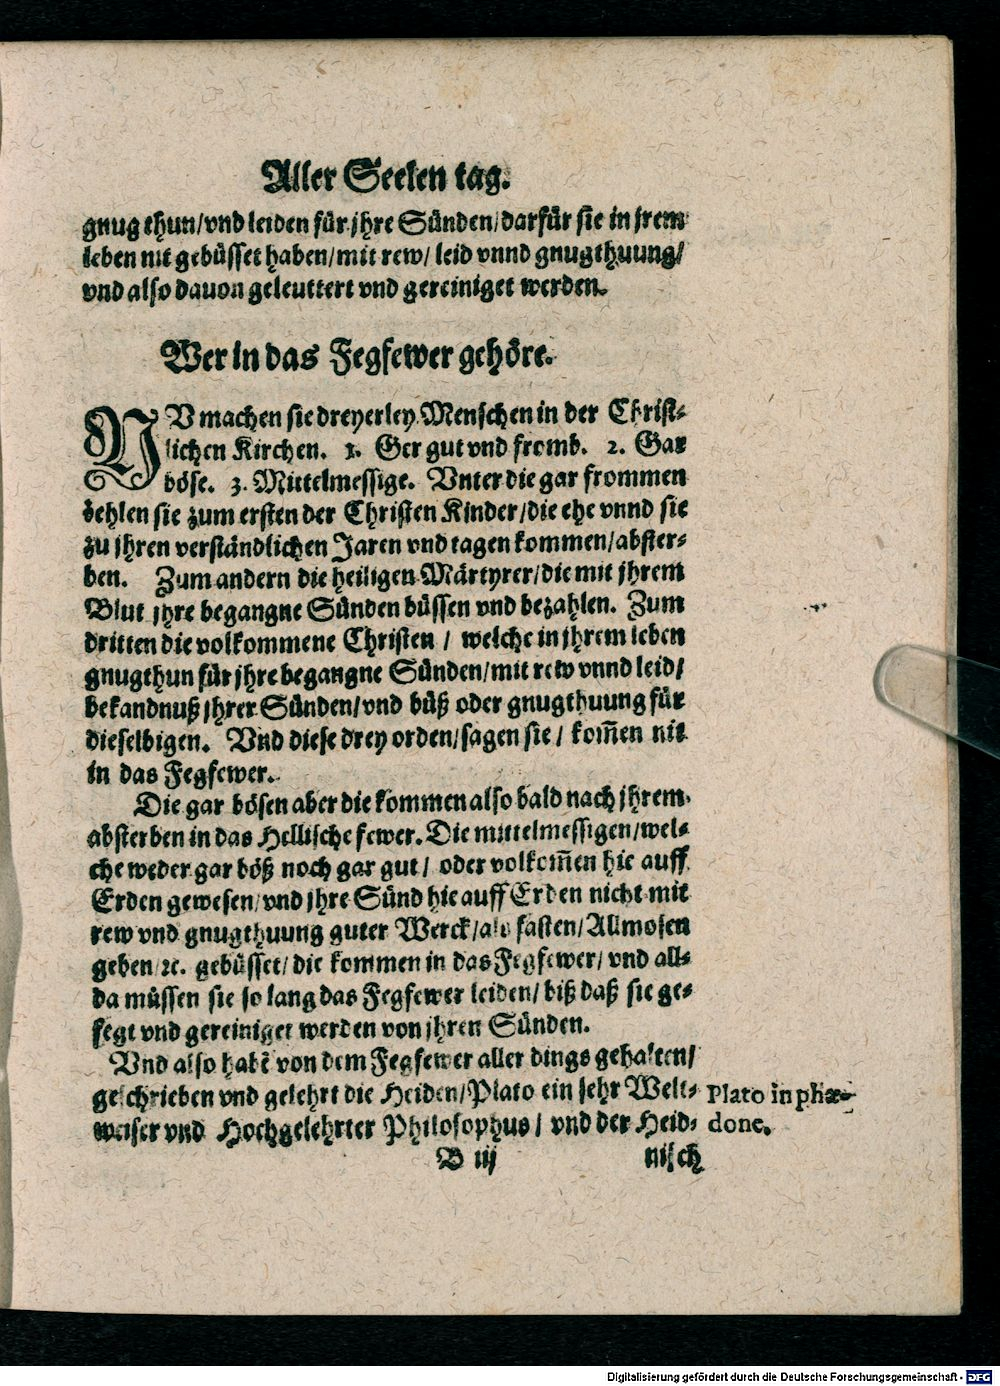 Aller Seelen tag.
gnug thun/vnd leiden für jhre Sünden/darfür sie in jrem
leben nit gebüsset haben/mit rew/ leid vnnd gnugthuung/
vnd also dauon geleuttert vnd gereiniget werden.
Wer in das Fegfewer gehöre.
NV machen sie dreyerley Menschen in der Christ-
lichen Kirchen. 1. Ger gut vnd fromb. 2. Gar
böse. 3. Mittelmessige. Vnter die gar frommen
zehlen sie zum ersten der Christen Kinder/die ehe vnnd sie
zu jhren verständlichen Jaren vnd tagen kommen/abster-
ben. Zum andern die heiligen Märtyrer/die mit jhrem
Blut jhre begangne Sünden büssen vnd bezahlen. Zum
dritten die volkommene Christen / welche in jhrem leben
gnugthun für jhre begangne Sünden/mit rew vnnd leid/
bekandnuß jhrer Sünden/vnd büß oder gnugthuung für
dieselbigen. Vnd diese drey orden/sagen sie / kom̃en nit
in das Fegfewer.
Die gar bösen aber die kommen also bald nach jhrem
absterben in das Hellische fewer. Die mittelmessigen/wel-
che weder gar böß noch gar gut / oder volkom̃en hie auff
Erden gewesen/vnd jhre Sünd hie auff Erden nicht mit
rew vnd gnugthuung guter Werck/als fasten/Allmosen
geben/ꝛc. gebüsset/die kommen in das Fegfewer/vnd all-
da müssen sie so lang das Fegfewer leiden/biß daß sie ge-
fegt vnd gereiniget werden von jhren Sünden.
Vnd also habẽ von dem Fegfewer aller dings gehalten/
geschrieben vnd gelehrt die Heiden/Plato ein sehr Welt-
weiser vnd Hochgelehrter Philosophus/ vnd der Heid-
Plato in phæ-
done.
B iij
nisch
Digitalisierung gefördert durch die Deutsche Forschungsgemeinschaft - DFG